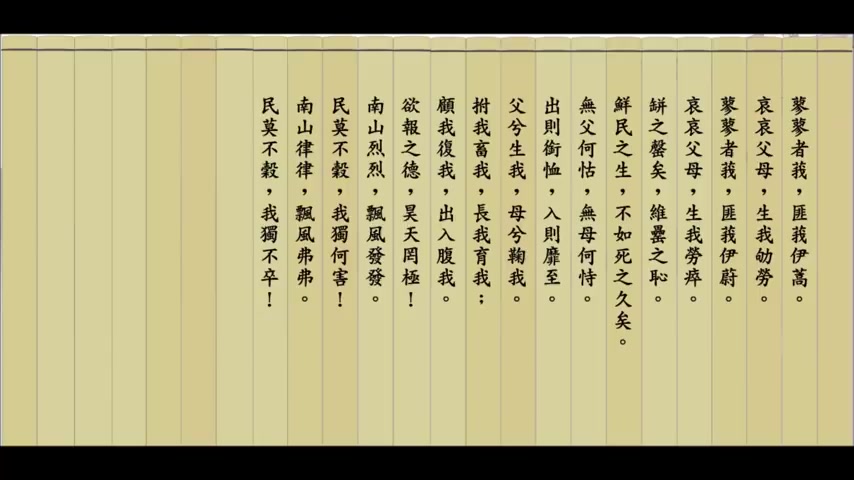 蓼蓼者莪，匪莪伊蒿。
哀哀父母，生我劬勞。
蓼蓼者莪，匪莪伊蔚。
哀哀父母，生我勞瘁。
缾之罄矣，維罍之恥。
鮮民之生，不如死之久矣。
無父何怙，無母何恃。
出則銜恤，入則靡至。
父兮生我，母兮鞠我。
拊我畜我，長我育我；
顧我復我，出入腹我。
欲報之德，昊天罔極！
南山烈烈，飄風發發。
民莫不穀，我獨何害！
南山律律，飄風弗弗。
民莫不穀，我獨不卒！